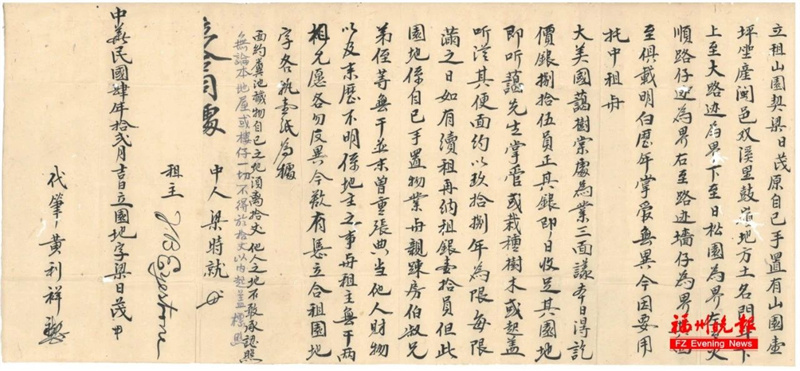 立租山園契梁日茂原自己手置有山園壹
坪坐產閩邑双溪里鼓嶺地方土名門下
上至大路迹為界下至日松園為界左至
順路仔迹為界右至路迹墻仔為界
至俱載明白歷年掌管無異今因要用
托中租與
大美國藹樹棠處為業三面議本日得訖
價銀捌拾伍員正其銀即日收足其園地
即聽藹先生掌管或栽種樹木或起蓋
听從其便面約以玖拾捌年為限每限
滿之日如有續租再納租銀壹拾員但此
園地係自己手置物業與親疎房伯叔兄
弟侄等無干並未曾重張典當他人財物
以及来歷不明係地主之事與租主無干两
相允愿各勿反異今欲有憑立合租園地
字各執壹紙為據
面約糞池穢物自己之地須离拾丈他人之地不敢承認照
無論本地屋或樓仔一切不得於拾丈以内起蓋照
中人梁時就
租主 J B Eyestone
中華民國肆年拾弍月吉日立園地字梁日茂
代筆黄利祥
福州晚报
FZ Evening News